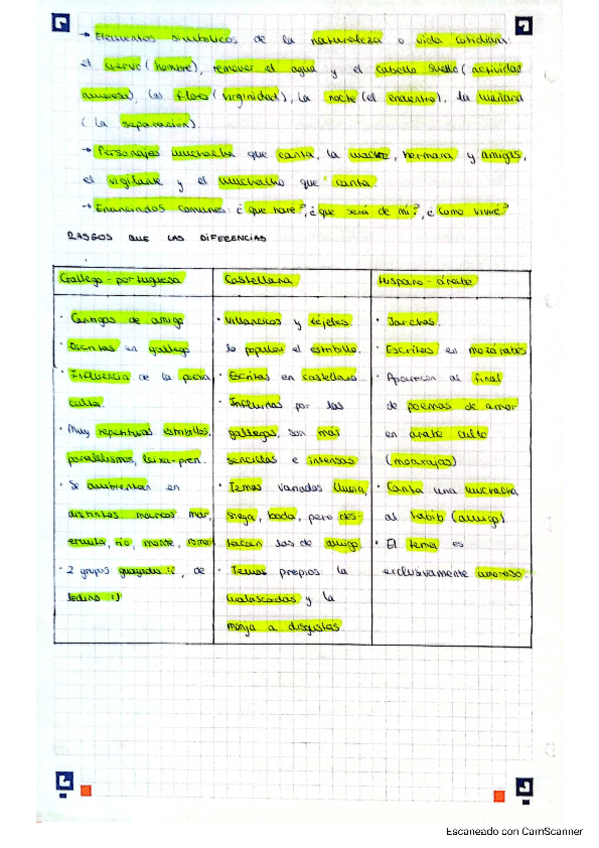 → Elementos simbólicos de la naturaleza o vida cotidiana:
el ciervo (hombre), remover el agua y el cabello suelto (actividad
amorosa), las flores (virginidad), la noche (el encuentro), la mañana
( la separación).
→ Personajes muchacha que canta, la madre, hermana y amigas,
el vigilante y el muchacho que canta.
→ Enunciados comunes: ¿que haré?, ¿que será de mi?, ¿como viviré?
RASGOS QUE LAS DIFERENCIAS
Gallego - portuguesa
· Cantigas de amigo
· Escritas en gallego
· Influencia de la poesía
culta.
· Muy repetitivas estribillos,
paralelismos, leixa-pren.
· Se ambientan en
distintos marcos mar,
ermita, río, monte,
· 2 grupos de
Castellana
· Villancicos y
lo popular el estribillo.
· Escritas en castellano
· Influidas por las
gallegas, son más
sencillas e intensas
· Temas variados lluvia,
siega, boda, pero des-
tacan las de amigo.
· Temas propios la
malcasada y la
monja a disgustas
Hispano - árabe
· Jarchas.
· Escritas en mozárabes
· Aparición al final
de poemas de amor
en árabe culto
(moaxajas)
· Canta una muchacha
al habib (amigo)
· El tema es
exclusivamente amoroso.
Escaneado con CamScanner